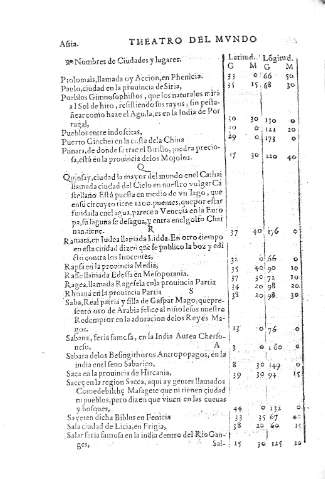 Assia. THEATRO DEL MVNDO
Nombres de Ciudades y lugares. Latitud. Lõgitud.
G M G M
Ptolomais, llamada oy Accion, en Phenicia. 33 0 66 50
Paolo, ciudad en la prouincia de Siria, 35 15 68 30
Pueblos Gimnosophistos, que los naturales mirã
al Sol de hito, resistiendo sus rayos, sin pestañear
como haze el Aguila, es en la India de Portugal,
10 30 130 0
Pueblos entre indoscitas, 10 0 122 20
Puerto Cinchet en la costa de la China 29 0 173 0
Punara, de donde se trae el Birilio, piedra preciosa,
està en la prouincia de los Mogoles. 17 30 120 40
Q
Quinsay, ciudad la mayor del mundo en el Cathai
llamada ciudad del Cielo en nuestro vulgar Castellano
Està puesta en medio de vn lago, que
en su circuyto tiene 1200. puentes, que por estar
fundada en el agua, parece a Venecia en la Europa,
su laguna se desagua, y entra en el golfo
37 40 156 0
R
Ramata, en Iudea llamada Lidda. En otro tiempo
en esta ciudad dizen que se publico la boz y edisto
contra los Inocentes, 32 0 66 0
Rapsa en la prouincia Media; 35 40 90 10
Rasse llamada Edessa en Mesopotania. 37 30 72 10
Ragea, llamada Ragesela en la prouincia Partia 34 20 98 20
Rhuana en la prouincia Partia 38 20 98 30
S
Saba, Real patria y silla de Gaspar Mago, que presento
vso de Arabia felice al niño Iesus nuestro
Redemptor en la adoracion de los Reyes Magos.
13 0 76 0
Sabana, feria famosa, en la India Aurea Chersoneso.
3 0 160 0
Sabara delos Besingithoros Antropopagos, en la
india en el seno Sabarico, 8 30 149 0
Saca en la prouincia de Hircania, 39 30 94 15
Sacee en la region Sacea, aqui ay gentes llamados
Comedebithe Massagete que ni tienen ciudad
ni pueblos, pero dizen que viuen en las cuevas
y bosques, 44 0 132 0
Sayetan dicha Biblus en Fenicia 33 35 67 0
Sala ciudad de Licia, en Frigia, 38 20 60 15
Salar feria famosa en la india dentro del Rio Ganges,
15 30 125 20
Sal-